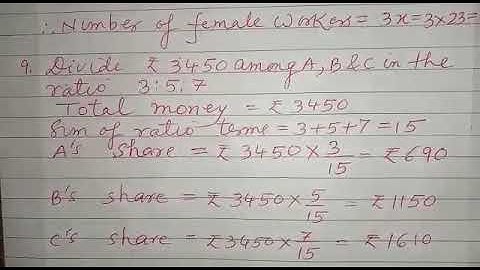 ∴ Number of female workers = 3x = 3×23 =
9. Divide ₹ 3450 among A, B & C in the
ratio 3:5:7
Total money = ₹ 3450
Sum of ratio terms = 3+5+7 = 15
A's share = ₹ 3450 × 3/15 = ₹ 690
B's share = ₹ 3450 × 5/15 = ₹ 1150
C's share = ₹ 3450 × 7/15 = ₹ 1610